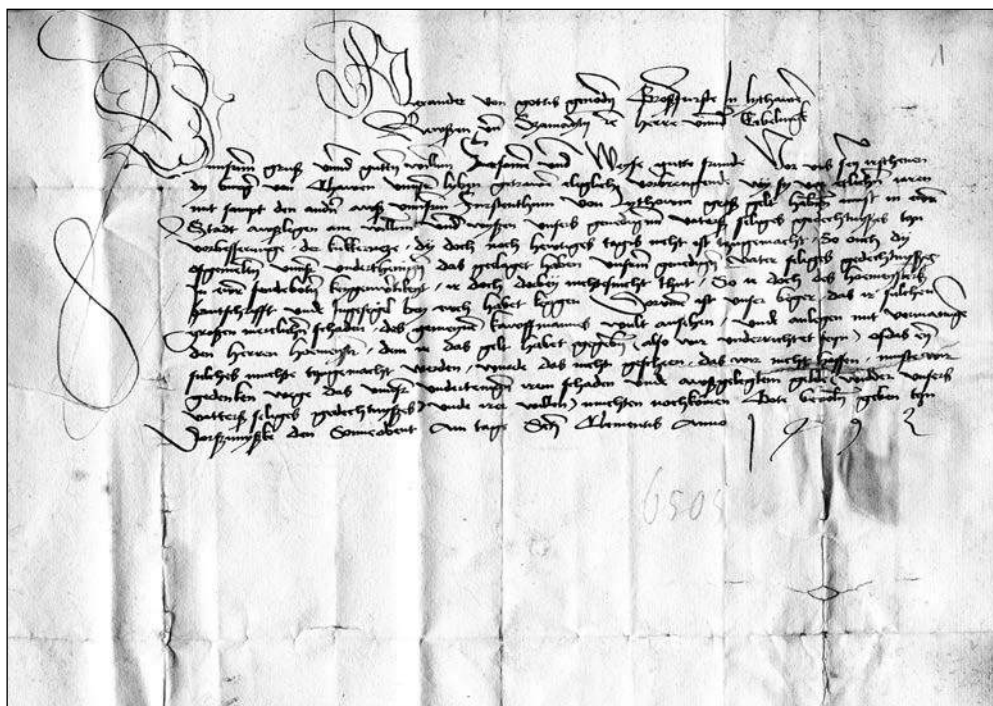 1
Alexander von gottis genaden Grosfurste in lythawen
Rewssen und Samaiten etc herre unnd Erbeling
Unsirn grus unnd gutten willen Irsamen und Weyse gutte frunde Vor uns sey irschenen
dy burger von Chawen unsir liben getrawen clegliche vorbrengende wy sy vor etlichen jaren
mit sampt den andern auss unsirm furstenthum von lythawen gros gelt haben must in ewer
Stadt ausligen ane willen und wissen unsers genedigen vaters seliges gedechtnisses czu
vorbesserunge der dy doch noch hewtiges tagis nicht ist czugemacht So ouch dy
ofgemelten unsir undirthenigen das geclaget haben unsirm genedigen vater seliges gedechtnisses
in ewer sendeboten ir doch dorbey nichtesnicht thut So ir doch des hoemeisters
hantschrifft unde Ingesigel bey euch habet legen Dorumme ist unser beger das ir sulchen
grossen merklichen schaden des gemeynen kawffmannes wult ansehen unde anlegen mit vormanunge
den herren hoemeister dem ir das gelt habet gegeben also wir underrichtet seyn ofdas eyn
sulchs muchte czugemacht werden, wurde das nicht gescheen, das wir nicht hoffen, muste wir
gedenken wege das unsir undertenigen irem schaden unde awssgelegtem gelde widder unsers
vatters seliges gedechtnisses unde iren willen muchten nochkomen Gote bevolen geben czu
den Sonnobent am tage Sancti Clementis Anno 1492
6505